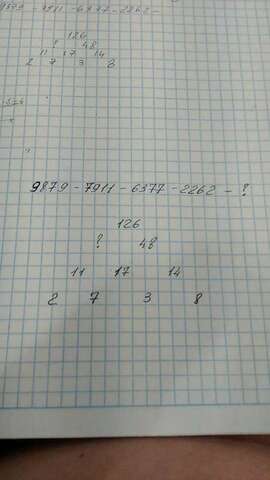 9879 - 7911 - 6377 - 2262 -
126
? 48
11 17 14
2 7 3 8
9879 - 7911 - 6377 - 2262 - ?
126
? 48
11 17 14
2 7 3 8